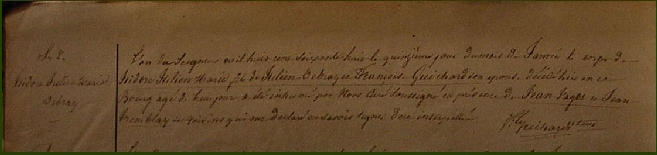 S. 2.
Isidore Julien Marie
Debray
L'an du Seigneur mil huit cent soixante huit le quinzième jour du mois de Janvier le corps de
Isidore Julien Marie fils de Julien Debray et François Guichard son épouse, décédé hier en ce
Bourg agé de huit jours a été inhumé par Nous Curé soussigné en présence de Jean Pages et Jean
Tremblay témoins qui ont déclaré ne savoir signer de ce interpellés